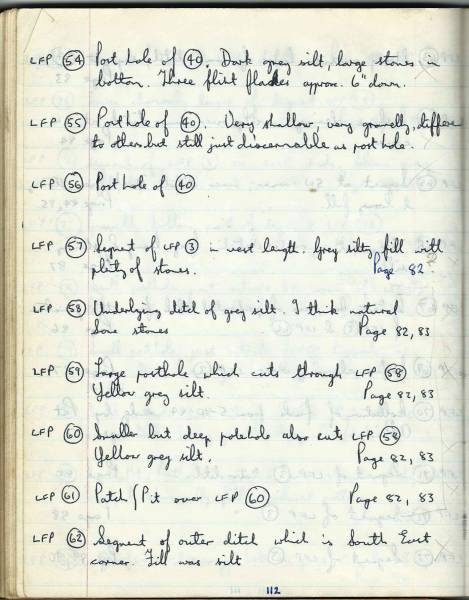 LFP 54 Post hole of 40. Dark grey silt, large stones in
bottom. Three flint flakes approx. 6" down.
LFP 55 Post hole of 40. Very shallow, very gravelly, different
to others but still just discernable as post hole.
LFP 56 Post hole of 40
LFP 57 Segment of LFP 3 in west length. Grey silty fill with
plenty of stones. Page 82
LFP 58 Underlying ditch of grey silt. I think natural
Some stones Page 82, 83
LFP 59 Large posthole which cuts through LFP 58
Yellow grey silt. Page 82, 83
LFP 60 Smaller but deep posthole also cuts LFP 58
Yellow grey silt. Page 82, 83
LFP 61 Patch/Pit over LFP 60 Page 82, 83
LFP 62 Segment of outer ditch which is South East
corner. Fill was silt
112